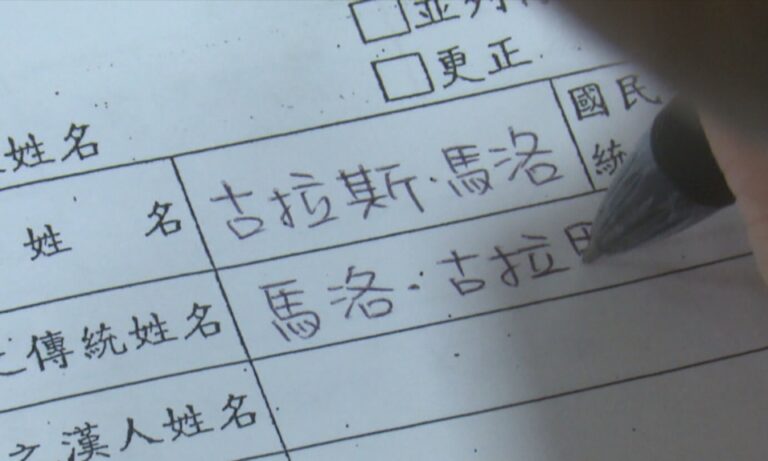 並列
更正
姓名
國民
姓 名 古拉斯·馬洛 統
傳統姓名 馬洛·古拉
漢人姓名